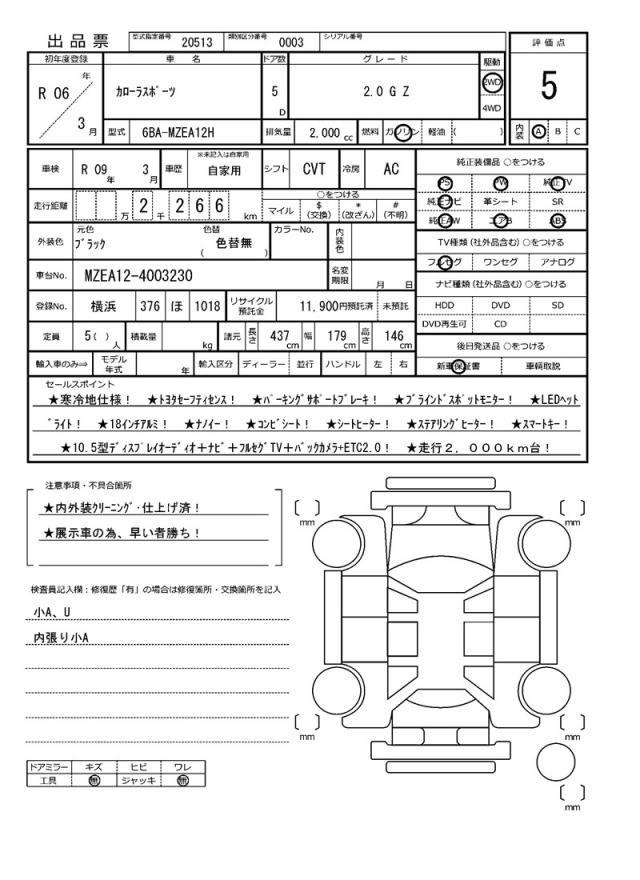 出品票 型式指定番号 20513 類別区分番号 0003 シリアル番号
評価点
5
初年度登録 車名 ドア数 グレード 駆動
R 06 年 3 月 カローラスポーツ 5 D 2.0 G Z 2WD 4WD
型式 6BA-MZEA12H 排気量 2,000 cc 燃料 ガソリン 軽油 ( )
内装 A B C
車検 R 09 年 3 月 車歴 ※未記入は自家用 自家用 シフト CVT 冷房 AC
走行距離 万 2 千 2 6 6 km
○をつける
マイル $ (交換) * (改ざん) # (不明)
外装色 元色 ブラック 色替 ( 色替無 ) カラーNo. 内装色
車台No. MZEA12-4003230 名変期限 月 日
登録No. 横浜 376 ほ 1018 リサイクル預託金 11,900円預託済 未預託
定員 5( ) 人 積載量 kg 諸元 長さ 437 cm 幅 179 cm 高さ 146 cm
輸入車のみ⇒ モデル年式 年 輸入区分 ディーラー 並行 ハンドル 左 右
純正装備品 ○をつける
PS PW 純正TV
純正ナビ 革シート SR
純正AW エアB ABS
TV種類(社外品含む) ○をつける
フルセグ ワンセグ アナログ
ナビ種類(社外品含む) ○をつける
HDD DVD SD
DVD再生可 CD
後日発送品 ○をつける
新車保証書 車輌取説
セールスポイント
★寒冷地仕様! ★トヨタセーフティセンス! ★パーキングサポートブレーキ! ★ブラインドスポットモニター! ★LEDヘッド
ライト! ★18インチアルミ! ★ナノイー! ★コンビシート! ★シートヒーター! ★ステアリングヒーター! ★スマートキー!
★10.5型ディスプレイオーディオ+ナビ+フルセグTV+バックカメラ+ETC2.0! ★走行2,000km台!
注意事項・不具合箇所
★内外装クリーニング・仕上げ済!
★展示車の為、早い者勝ち!
検査員記入欄:修復歴「有」の場合は修復箇所・交換箇所を記入
小A、U
内張り小A
ドアミラー キズ ヒビ ワレ
工具 無 ジャッキ 無
mm
mm
mm
mm
mm